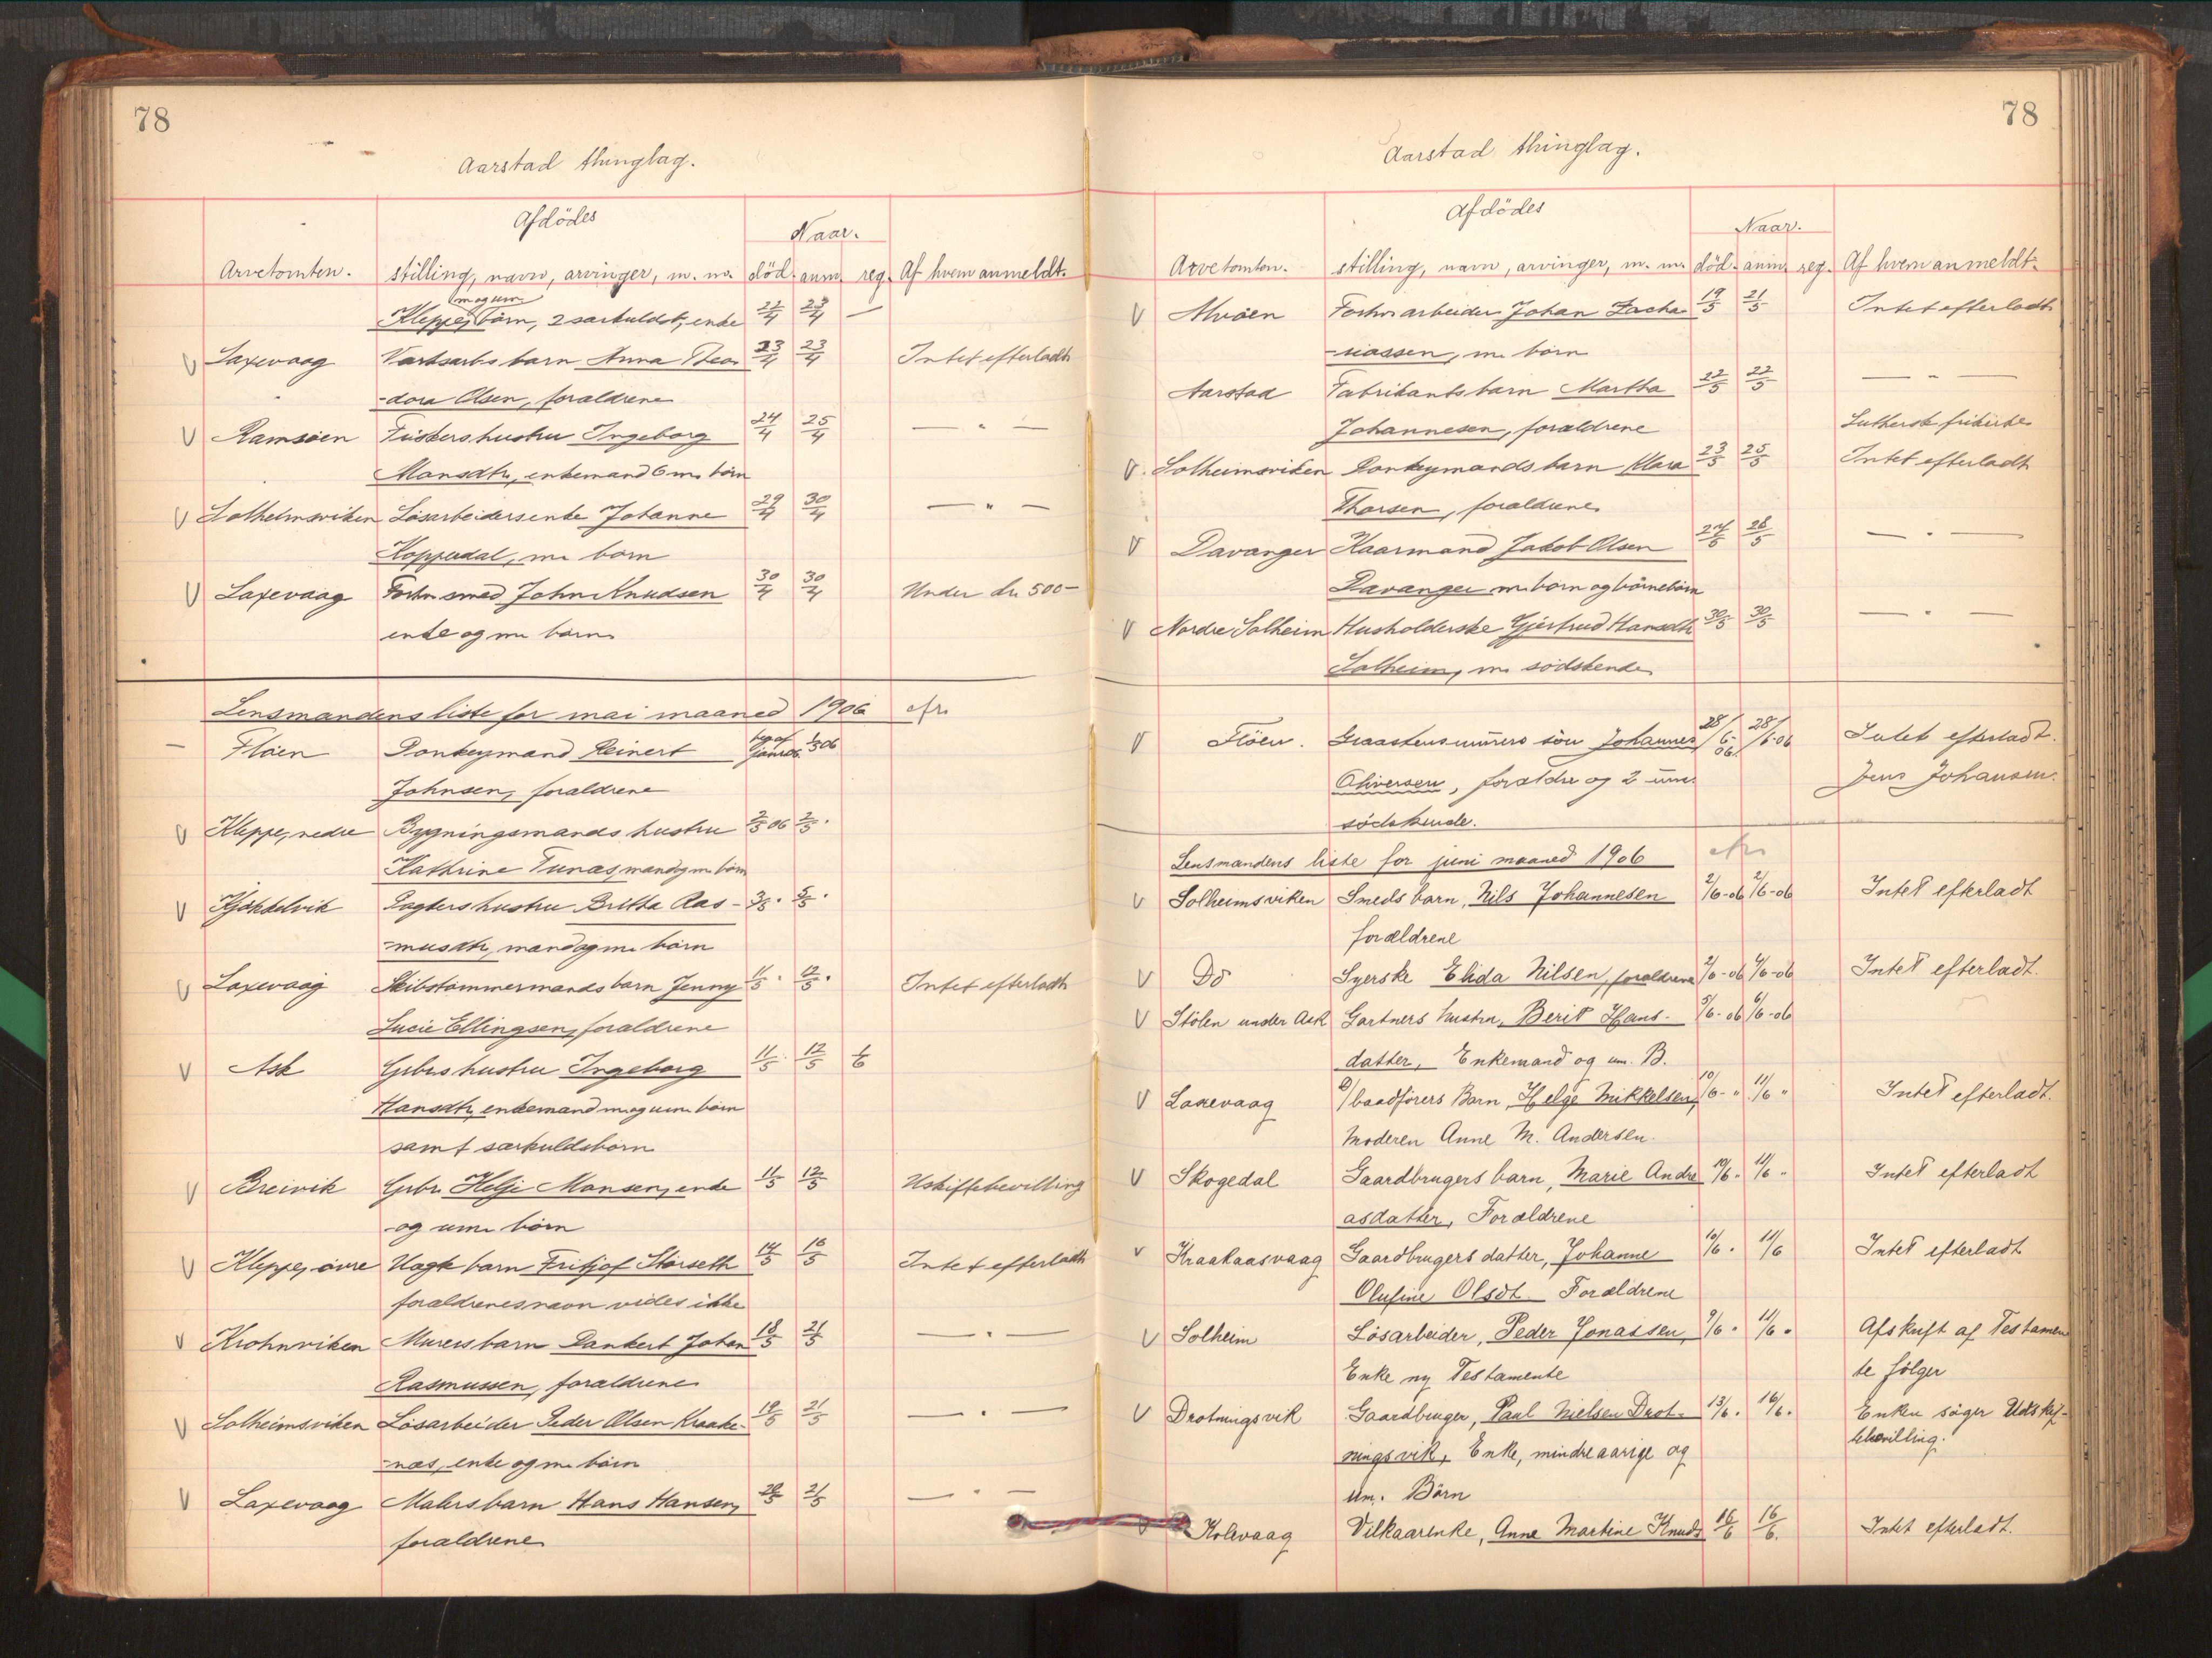 78
Aarstad thinglag.
Afdödes
Naar.
Arvetomten. stilling, navn, arvinger, m. m. död. anm. reg. Af hvem anmeldt.
m og um
Kleppe, börn, 2 særkuldst, enke 22/4 23/4 —
V Laxevaag Værksarbs barn Anna Theo 23/4 23/4 Intet efterladt
-dora Olsen, forældrene
V Ramsöen Fiskers hustru Ingeborg 24/4 25/4 — " —
Monsdtr, enkemand 6 m. börn
V Solheimsviken Lösarbeidersenke Johanne 29/4 30/4 — " —
Kopperdal, m. börn
V Laxevaag Forhv. smed John Knudsen 30/4 30/4 Under kr. 500-
enke og m. börn
Lensmandens liste for mai maaned 1906 efr.
— Flöen Donkeymand Reinert 1/5 06
Johnsen, forældrene
V Kleppe, nedre Bygningsmands hustru 2/5 06 2/5 "
Kathrine Tunæs, mand og m. börn
V Kjökkelvik Sagkers hustru Britha Ras- 3/5 " 5/5 "
-musdtr, mand og m. börn
V Laxevaag Skibstömmermands barn Jenny 11/5 " 12/5 " Intet efterladt
Lucie Ellingsen, forældrene
V Ask Grbrs hustru Ingeborg 11/5 " 12/5 1/6
Hansdtr, enkemand m. og um. börn
samt særkuldsbörn
V Breivik Grbr. Helje Monsen, enke 11/5 12/5 Uskiftebevilling
og um. börn
V Kleppe, övre Uægte barn Fritjof Störseth 14/5 16/5 Intet efterladt
forældrenes navn vides ikke
V Krohnviken Murers barn Dankert Johan 18/5 21/5 — " —
Rasmussen, forældrene
V Solheimsviken Lösarbeider Peder Olsen Kraake- 19/5 21/5 — " —
-næs, enke og m. börn
V Laxevaag Malers barn Hans Hansen, 20/5 21/5 — " —
forældrene
78
Aarstad thinglag.
Afdödes
Naar.
Arvetomten. stilling, navn, arvinger, m. m. död. anm. reg. Af hvem anmeldt.
V Alvöen Forhv. arbeider Johan Zacha 19/5 21/5 Intet efterladt
-riassen, m. börn
Aarstad Fabrikants barn Martha 22/5 22/5 — " —
Johannesen, forældrene Luthersk frikirke
V Solheimsviken Donkeymands barn Klara 23/5 25/5 Intet efterladt
Thorsen, forældrene
V Davanger Kaarmand Jakob Olsen 24/5 26/5 — " —
Davanger m. börn og börnebörn
V Nordre Solheim Husholderske Gjertrud Hansdtr 30/5 30/5 — " —
Solheim, m. södskende
V Flöen. Graastensmurers sön Johannes 28/6-06. 28/6-06 Intet efterladt.
Oliversen, forældre og 2 um. Jens Johansen.
södskende.
Lensmandens liste for juni maaned 1906 efr.
V Solheimsviken Smeds barn, Nils Johannesen 2/6-06 2/6-06 Intet efterladt
forældrene
V Do Syerske Elida Nilsen, forældrene 2/6-06 4/6-06 Intet efterladt.
V Stölen under Ask Gartners hustru, Berit Hans- 5/6-06 6/6-06
datter, Enkemand og um. B.
V Laxevaag baadförers Barn, Helge Mikkelsen, 10/6-" 11/6 " Intet efterladt.
Moderen Anne M. Andersen.
V Skogedal Gaardbrugers barn, Marie Andre 10/6 " 11/6 " Intet efterladt
asdatter, Forældrene
V Kraakaasvaag Gaardbrugers datter, Johanne 10/6 " 11/6 Intet efterladt
Olufine Olsdt. Forældrene
V Solheim Lösarbeider, Peder Jonassen, 9/6 " 11/6 " Afskrift af Testamen
Enke ny Testamente te følger
V Drotningsvik Gaardbruger, Paul Nielsen Drot- 13/6 " 16/6 " Enken söger Udskif-
ningsvik, Enke, mindreaarige og tebevilling.
um. Börn
V Kolevaag Vilkaarenke, Anne Martine Knuds 16/6 16/6. Intet efterladt.